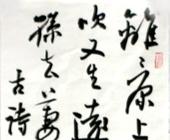 離々原上
吹又生遠
孫去萋
古詩